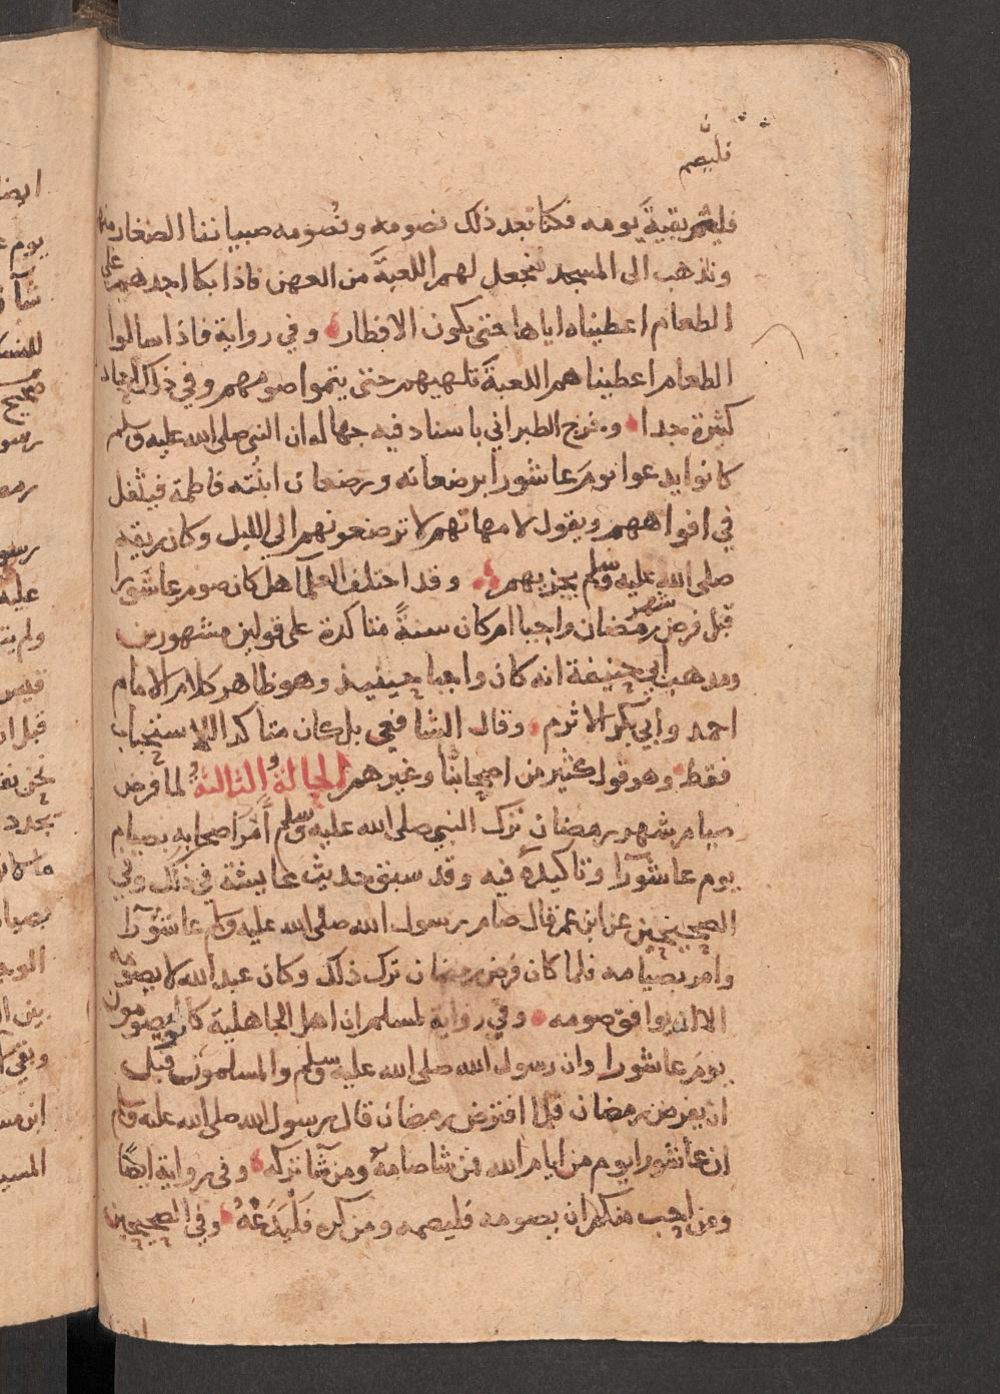 فليصم
فليتم بقية يومه فكنا بعد ذلك نصومه ونصومه صبياننا الصغار منهم
ونذهب الى المسجد فنجعل لهم اللعبة من العهن فاذا بكا احدهم على
الطعام اعطيناه اياها حتى يكون الافطار وفي رواية فاذا سالوا
الطعام اعطيناهم اللعبة تلهيهم حتى يتموا صومهم وفي ذلك احاد
كثيرة جدا وخرج الطبراني باسناد فيه جهالة ان النبي صلى الله عليه وسلم
كانوا يدعوا يوم عاشورا برضعاته ورضعات ابنته فاطمة فيتفل
في افواههم ويقول لامهاتهم لا ترضعونهم الي الليل وكان ريقه
صلى الله عليه وسلم يجزيهم وقد اختلف العلما هل كان صوم عاشورا
قبل فرض شهر رمضان واجبا ام كان سنة متاكدة على قولين مشهورين
ومذهب ابي حنيفة انه كان واجبا حينيذ وهو ظاهر كلام الامام
احمد وابي بكر الاثرم وقال الشافعي بل كان متاكد الاستحباب
فقط وهو قول كثير من اصحابنا وغيرهم الحالة الثالثة لما فرض
صيام شهر رمضان ترك النبي صلى الله عليه وسلم امر اصحابه بصيام
يوم عاشورا وتاكيده فيه وقد سبق حديث عايشة في ذلك وفي
الصحيحين عن ابن عمر قال صام رسول الله صلى الله عليه وسلم عاشورا
وامر بصيامه فلما كان فرض رمضان ترك ذلك وكان عبد الله لا يصومه
الا ان يوافق صومه وفي رواية لمسلم ان اهل الجاهلية كانوا يصومون
يوم عاشورا وان رسول الله صلى الله عليه وسلم والمسلمون قبل
ان يفرض رمضان فلما افترض رمضان قال رسول الله صلى الله عليه وسلم
ان عاشورا يوم من ايام الله فمن شا صامه ومن شا تركه وفي رواية ايضا
ومن احب منكم ان يصومه فليصمه ومن كره فليدعه وفي الصحيحين